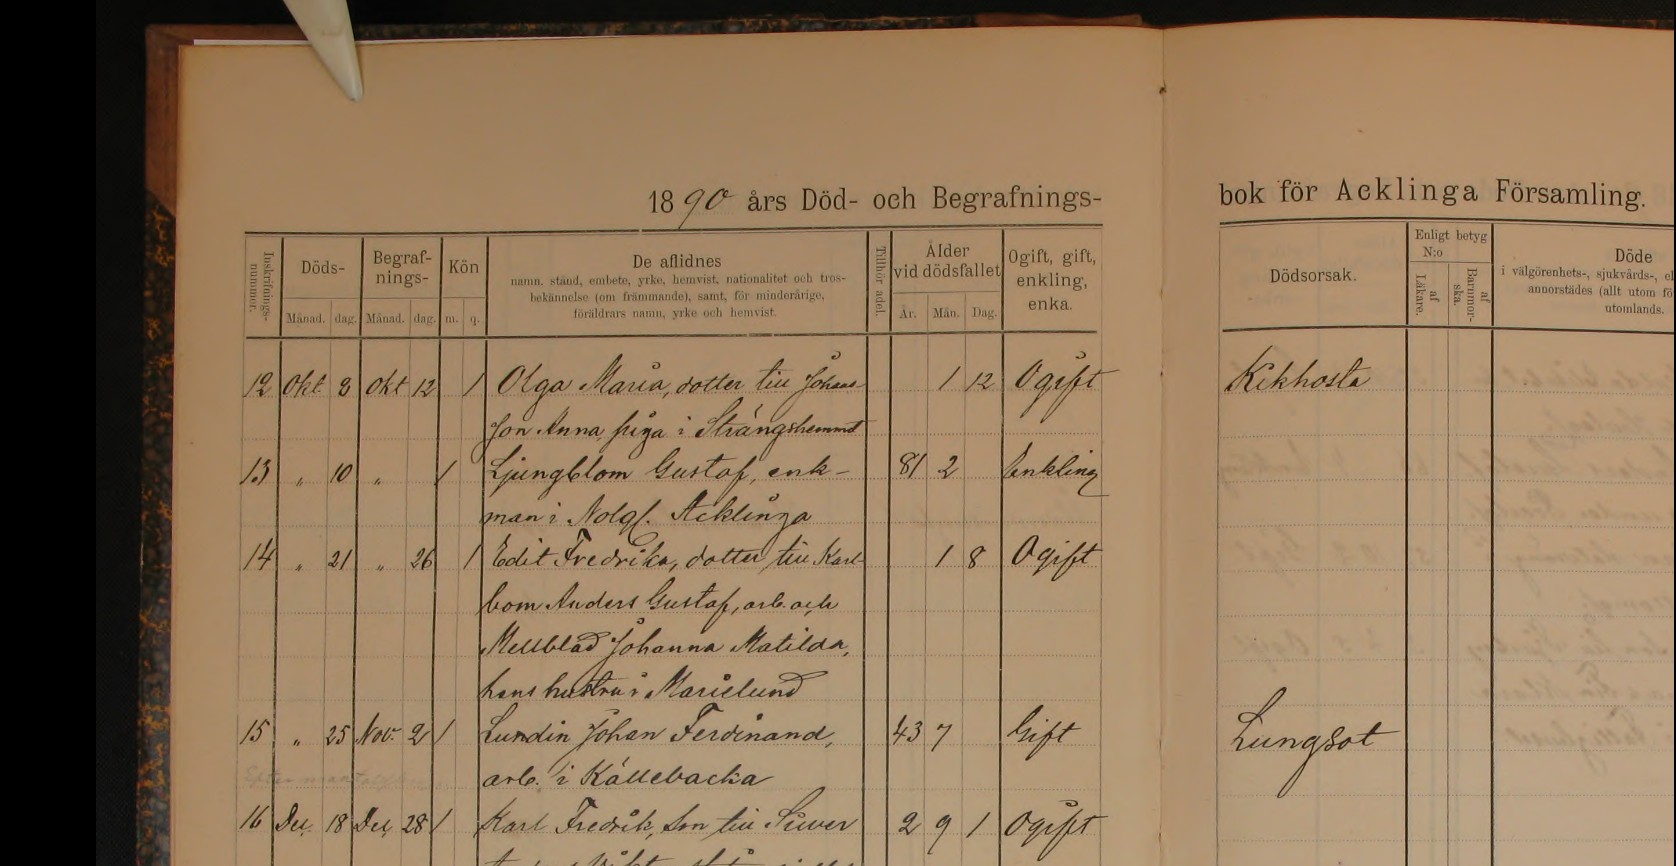 1890 års Död- och Begrafnings- bok för Acklinga Församling.
Inskrifnings-nummer.
Döds-
Månad. dag.
Begraf-nings-
Månad. dag.
Kön
m. q.
De aflidnes
namn, stånd, embete, yrke, hemvist, nationalitet och tros-
bekännelse (om främmande), samt, för minderårige,
föräldrars namn, yrke och hemvist.
Tillhör adel.
Ålder
vid dödsfallet
År. Mån. Dag.
Ogift, gift,
enkling,
enka.
Dödsorsak.
Enligt betyg
N:o
af Läkare.
af Barnmor-ska.
Döde
i välgörenhets-, sjukvårds-, el
annorstädes (allt utom fö
utomlands.
12 Okt 3 Okt 12 1 Olga Maria, dotter till Johans- 1 12 Ogift Kikhosta
son Anna, piga i Strängshemmet
13 " 10 " 1 Ljungblom Gustaf, enk- 81 2 Enkling
man i Nolgf. Acklinga
14 " 21 " 26 1 Edit Fredrika, dotter till Karl- 1 8 Ogift
bom Anders Gustaf, arb. och
Mellblad Johanna Matilda,
hans hustru i Marielund
15 " 25 Nov. 2 1 Lundin Johan Ferdinand, 43 7 Gift Lungsot
arb. i Källebacka
16 Dec. 18 Dec. 28 1 Karl Fredrik, son till Siwer 2 9 1 Ogift